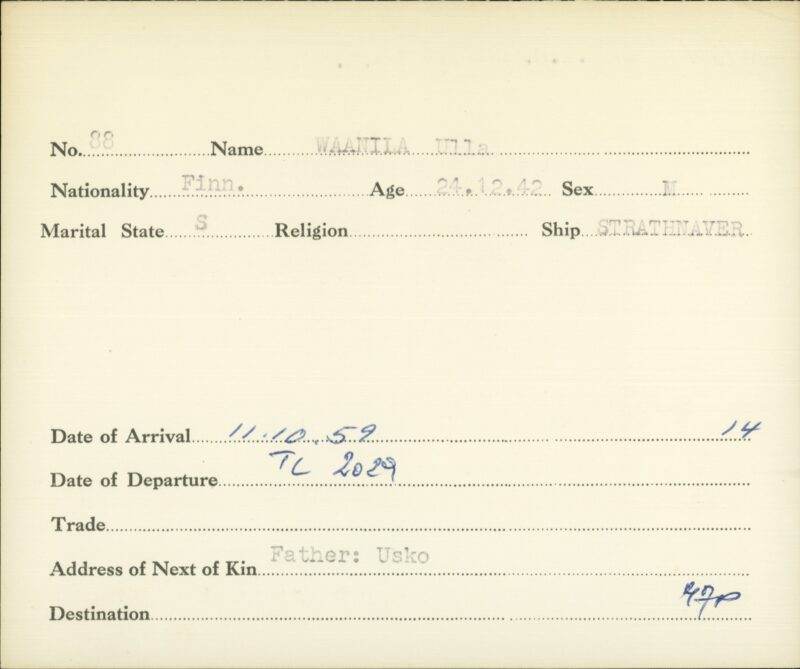 No. 88 Name WAANILA Ulla
Nationality Finn. Age 24.12.42 Sex M
Marital State S Religion Ship STRATHNAVER
Date of Arrival 11.10.59 14
Date of Departure TL 2029
Trade
Address of Next of Kin Father: Usko
Destination